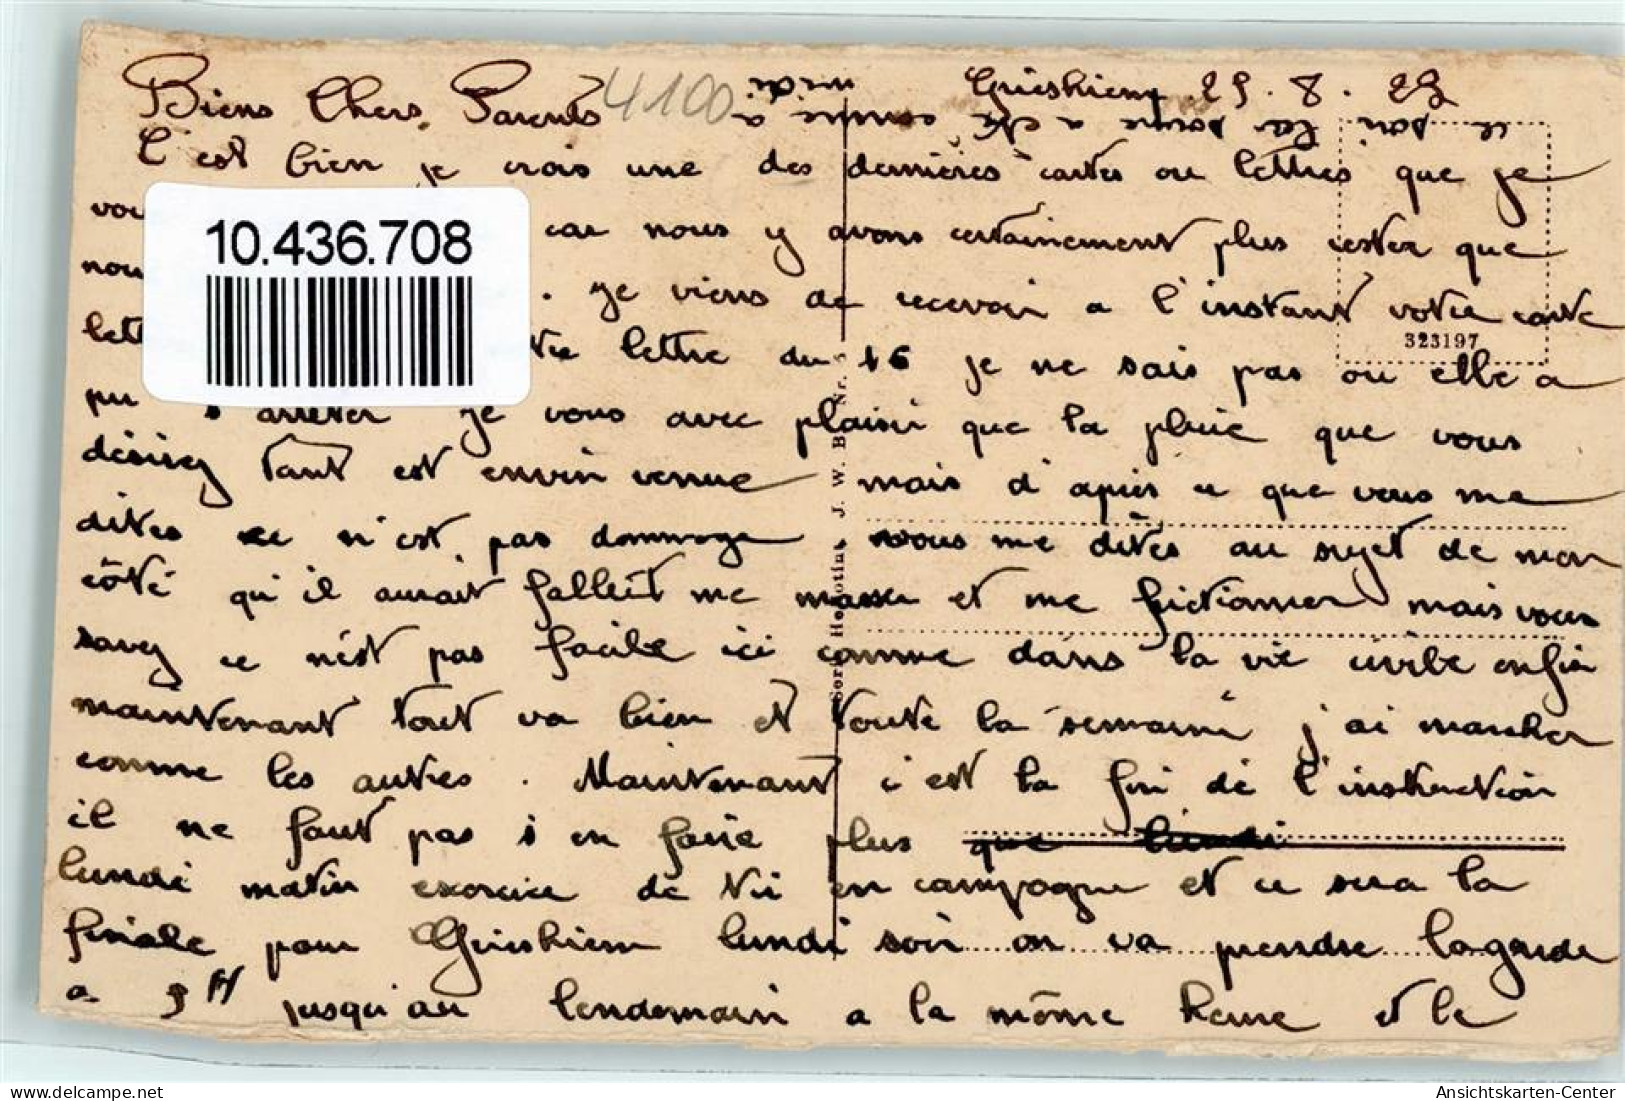 Griesheim 25.8.23
Biens Chers Parents
4100
C'est bien je crois une des dernières cartes ou lettres que je
vou car nous y avons certainement plus rester que
nou . Je viens de recevoir a l'instant votre carte
lett lettre du 16 je ne sais pas ou elle a
pu s'arreter je vous avec plaisir que la pluie que vous
désirez tant est enfin venue mais d'après ce que vous me
dites ce n'est pas dommage vous me dites au sujet de mon
côté qu'il aurait falleut me masser et me frictionner mais vous
savez ce n'est pas facile ici comme dans la vie civile enfin
maintenant tout va bien et toute la semaine j'ai marcher
comme les autres . Maintenant c'est la fin de l'instruction
il ne faut pas s'en faire plus que lundi
lundi matin exercice de tir en campagne et ce sera la
finale pour Griesheim lundi soir on va prendre la garde
a 9H jusqu'au lendemain a la même heure et le
soir
midi
10.436.708
323197
J. W. B.
Ansichtskarten-Center
www.delcampe.net